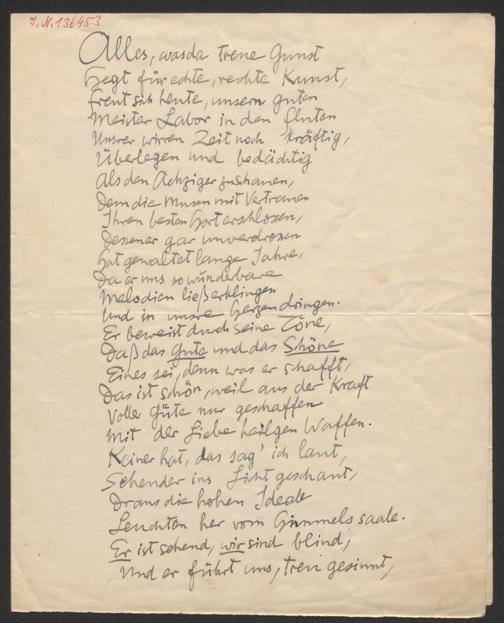 J.N. 136453
Alles, was da treue Gunst
Hegt für echte, rechte Kunst,
Freut sich heute, unsern guten
Meister Labor in den Fluten
Unsrer wirren Zeit noch kräftig,
Überlegen und bedächtig
Als den Achziger zu schauen,
Dem die Musen mit Vertrauen
Ihren besten Hort erschlossen,
Dessen er gar unverdrossen
Hat gewaltet lange Jahre,
Da er uns so wunderbare
Melodien ließ erklingen
Und in unsre Herzen dringen.
Er beweist durch seine Töne,
Daß das Gute und das Schöne
Eines sei, denn was er schafft,
Das ist schön, weil aus der Kraft
Voller Güte nur geschaffen
Mit der Liebe heilgen Waffen.
Keiner hat, das sag' ich laut,
Sehender ins Licht geschaut,
Draus die hohen Ideale
Leuchten her vom Himmelssaale.
Er ist sehend, wir sind blind,
Und er führt uns, treu gesinnt,